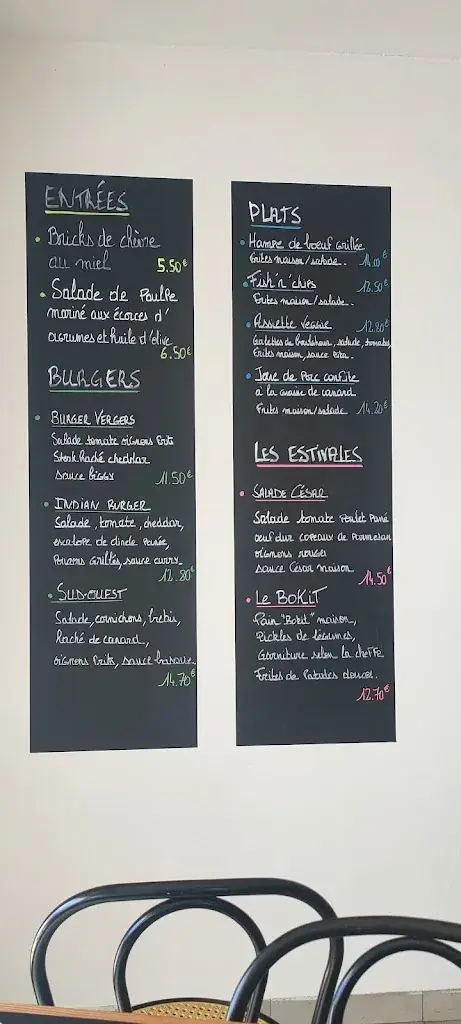 ENTRÉES
Bricks de chèvre
au miel 5.50€
Salade de Poulpe
mariné aux écorces d'
agrumes et huile d'olive
6.50€
BURGERS
BURGER VERGERS
Salade tomate oignons frits
Steak haché cheddar
sauce biggy 11.50€
INDIAN BURGER
Salade, tomate, cheddar,
escalope de dinde panée,
Poivrons Grillés, sauce curry.
12.80€
SUD-OUEST
Salade, cornichons, brebis,
Haché de canard,
oignons frits, sauce basque.
14.70€
PLATS
Hampe de boeuf Grillée
frites maison/salade. 14.00€
Fish'n'chips 12.50€
Frites maison/salade.
Assiette Veggie 12.80€
Galettes de boulghour, salade, tomates,
frites maison, sauce
Joue de Porc confite
à la graisse de canard
Frites maison/salade 14.20€
LES ESTIVALES
SALADE CÉSAR
Salade tomate Poulet Pané
oeuf dur copeaux de Parmesan
oignons rouges
sauce César maison
14.50€
Le BOKIT
Pain "Bokit" maison,
Pickles de légumes,
Garniture selon la cheffe
Frites de Patates douces.
12.70€